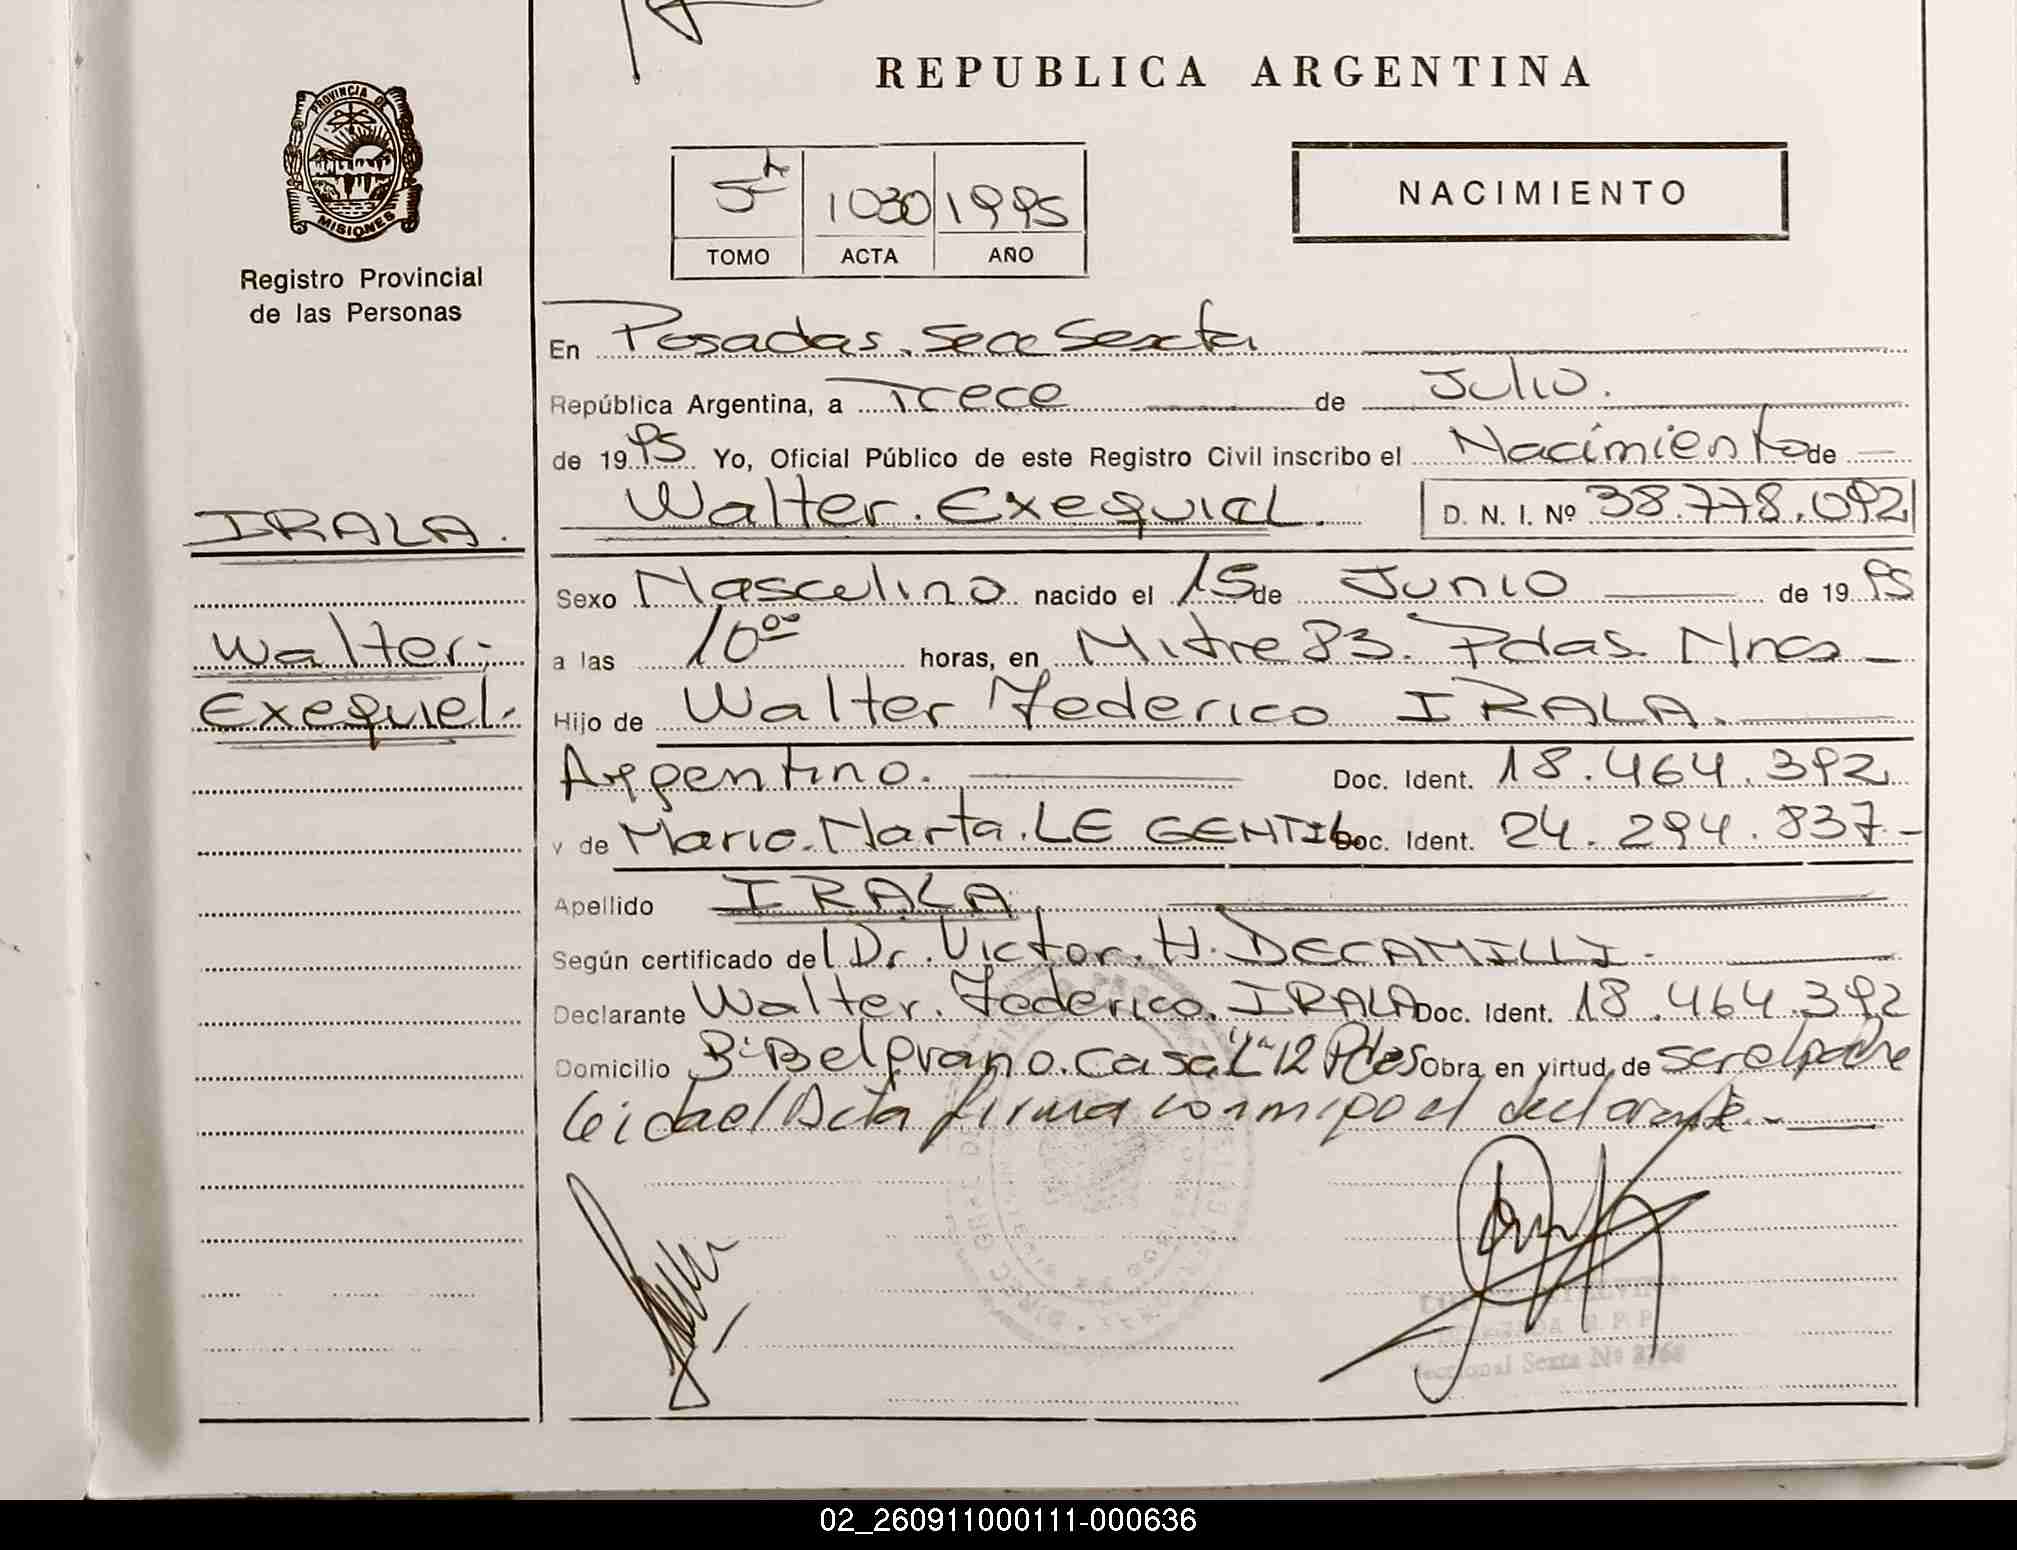 REPUBLICA ARGENTINA
PROVINCIA DE
MISIONES
Registro Provincial
de las Personas
5ᵗᵒ 1030 1995
TOMO ACTA AÑO
NACIMIENTO
En Posadas. Secc Sexta
República Argentina, a Trece de Julio.
de 1995 Yo, Oficial Público de este Registro Civil inscribo el Nacimiento de
Walter. Exequiel. D. N. I. Nº 38.778.092
IRALA.
Walter.
Exequiel.
Sexo Masculino nacido el 15 de Junio de 1995
a las 10⁰⁰ horas, en Mitre 83. Pdas. Mnes
Hijo de Walter Federico IRALA.
Argentino. Doc. Ident. 18.464.392
y de Maria. Marta. LE GENTIL Doc. Ident. 24.294.837-
Apellido IRALA
Según certificado del Dr. Victor. H. DECAMILLI.
Declarante Walter. Federico. IRALA Doc. Ident. 18.464.392
Domicilio Bº Belgrano. Casa "L" 12 Pdas Obra en virtud de ser el padre
leida el Acta firma conmigo el declarante.-
Seccional Sexta Nº 3768
02_260911000111-000636